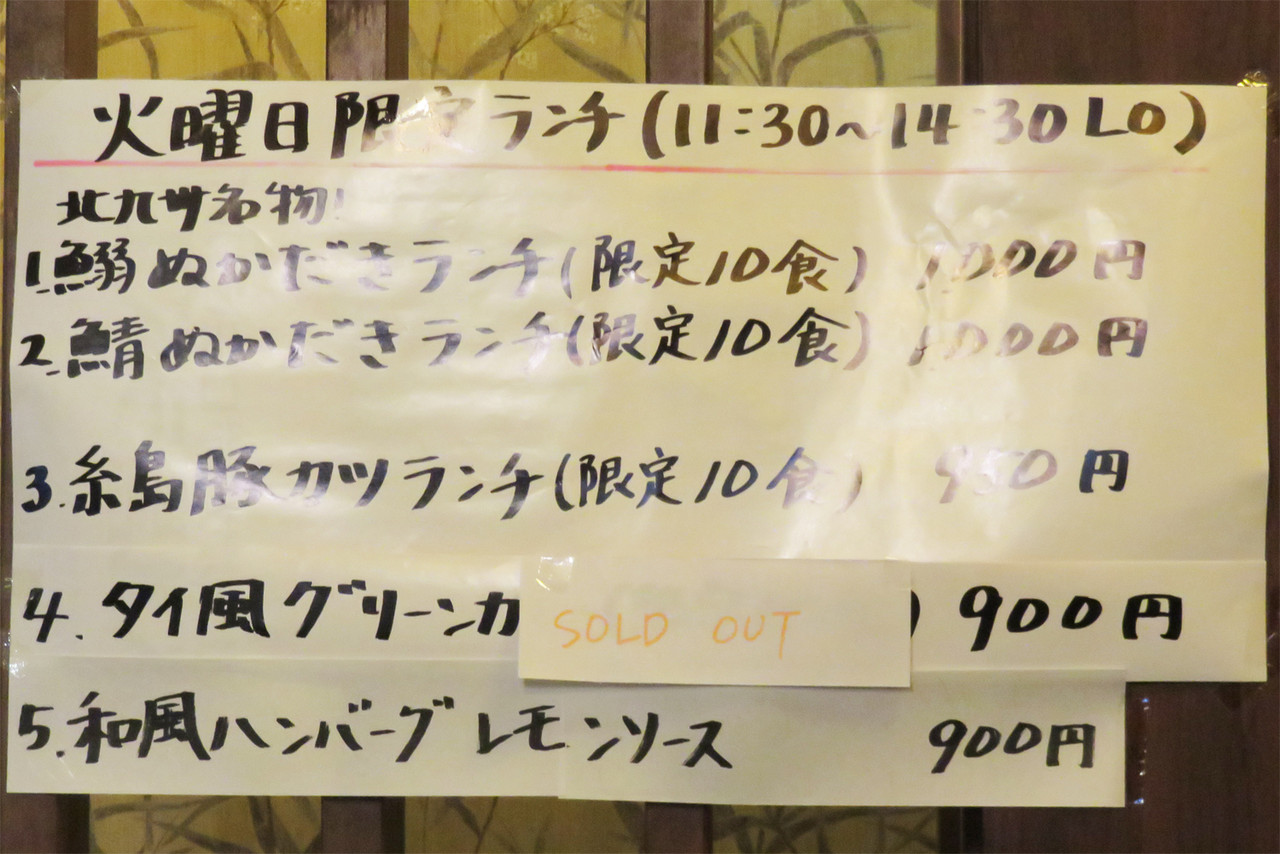 火曜日限定ランチ(11:30~14:30LO)
北九州名物!
1.鰯ぬかだきランチ(限定10食) 1,000円
2.鯖ぬかだきランチ(限定10食) 1,000円
3.糸島豚カツランチ(限定10食) 950円
4.タイ風グリーンカ SOLD OUT ) 900円
5.和風ハンバーグ レモンソース 900円